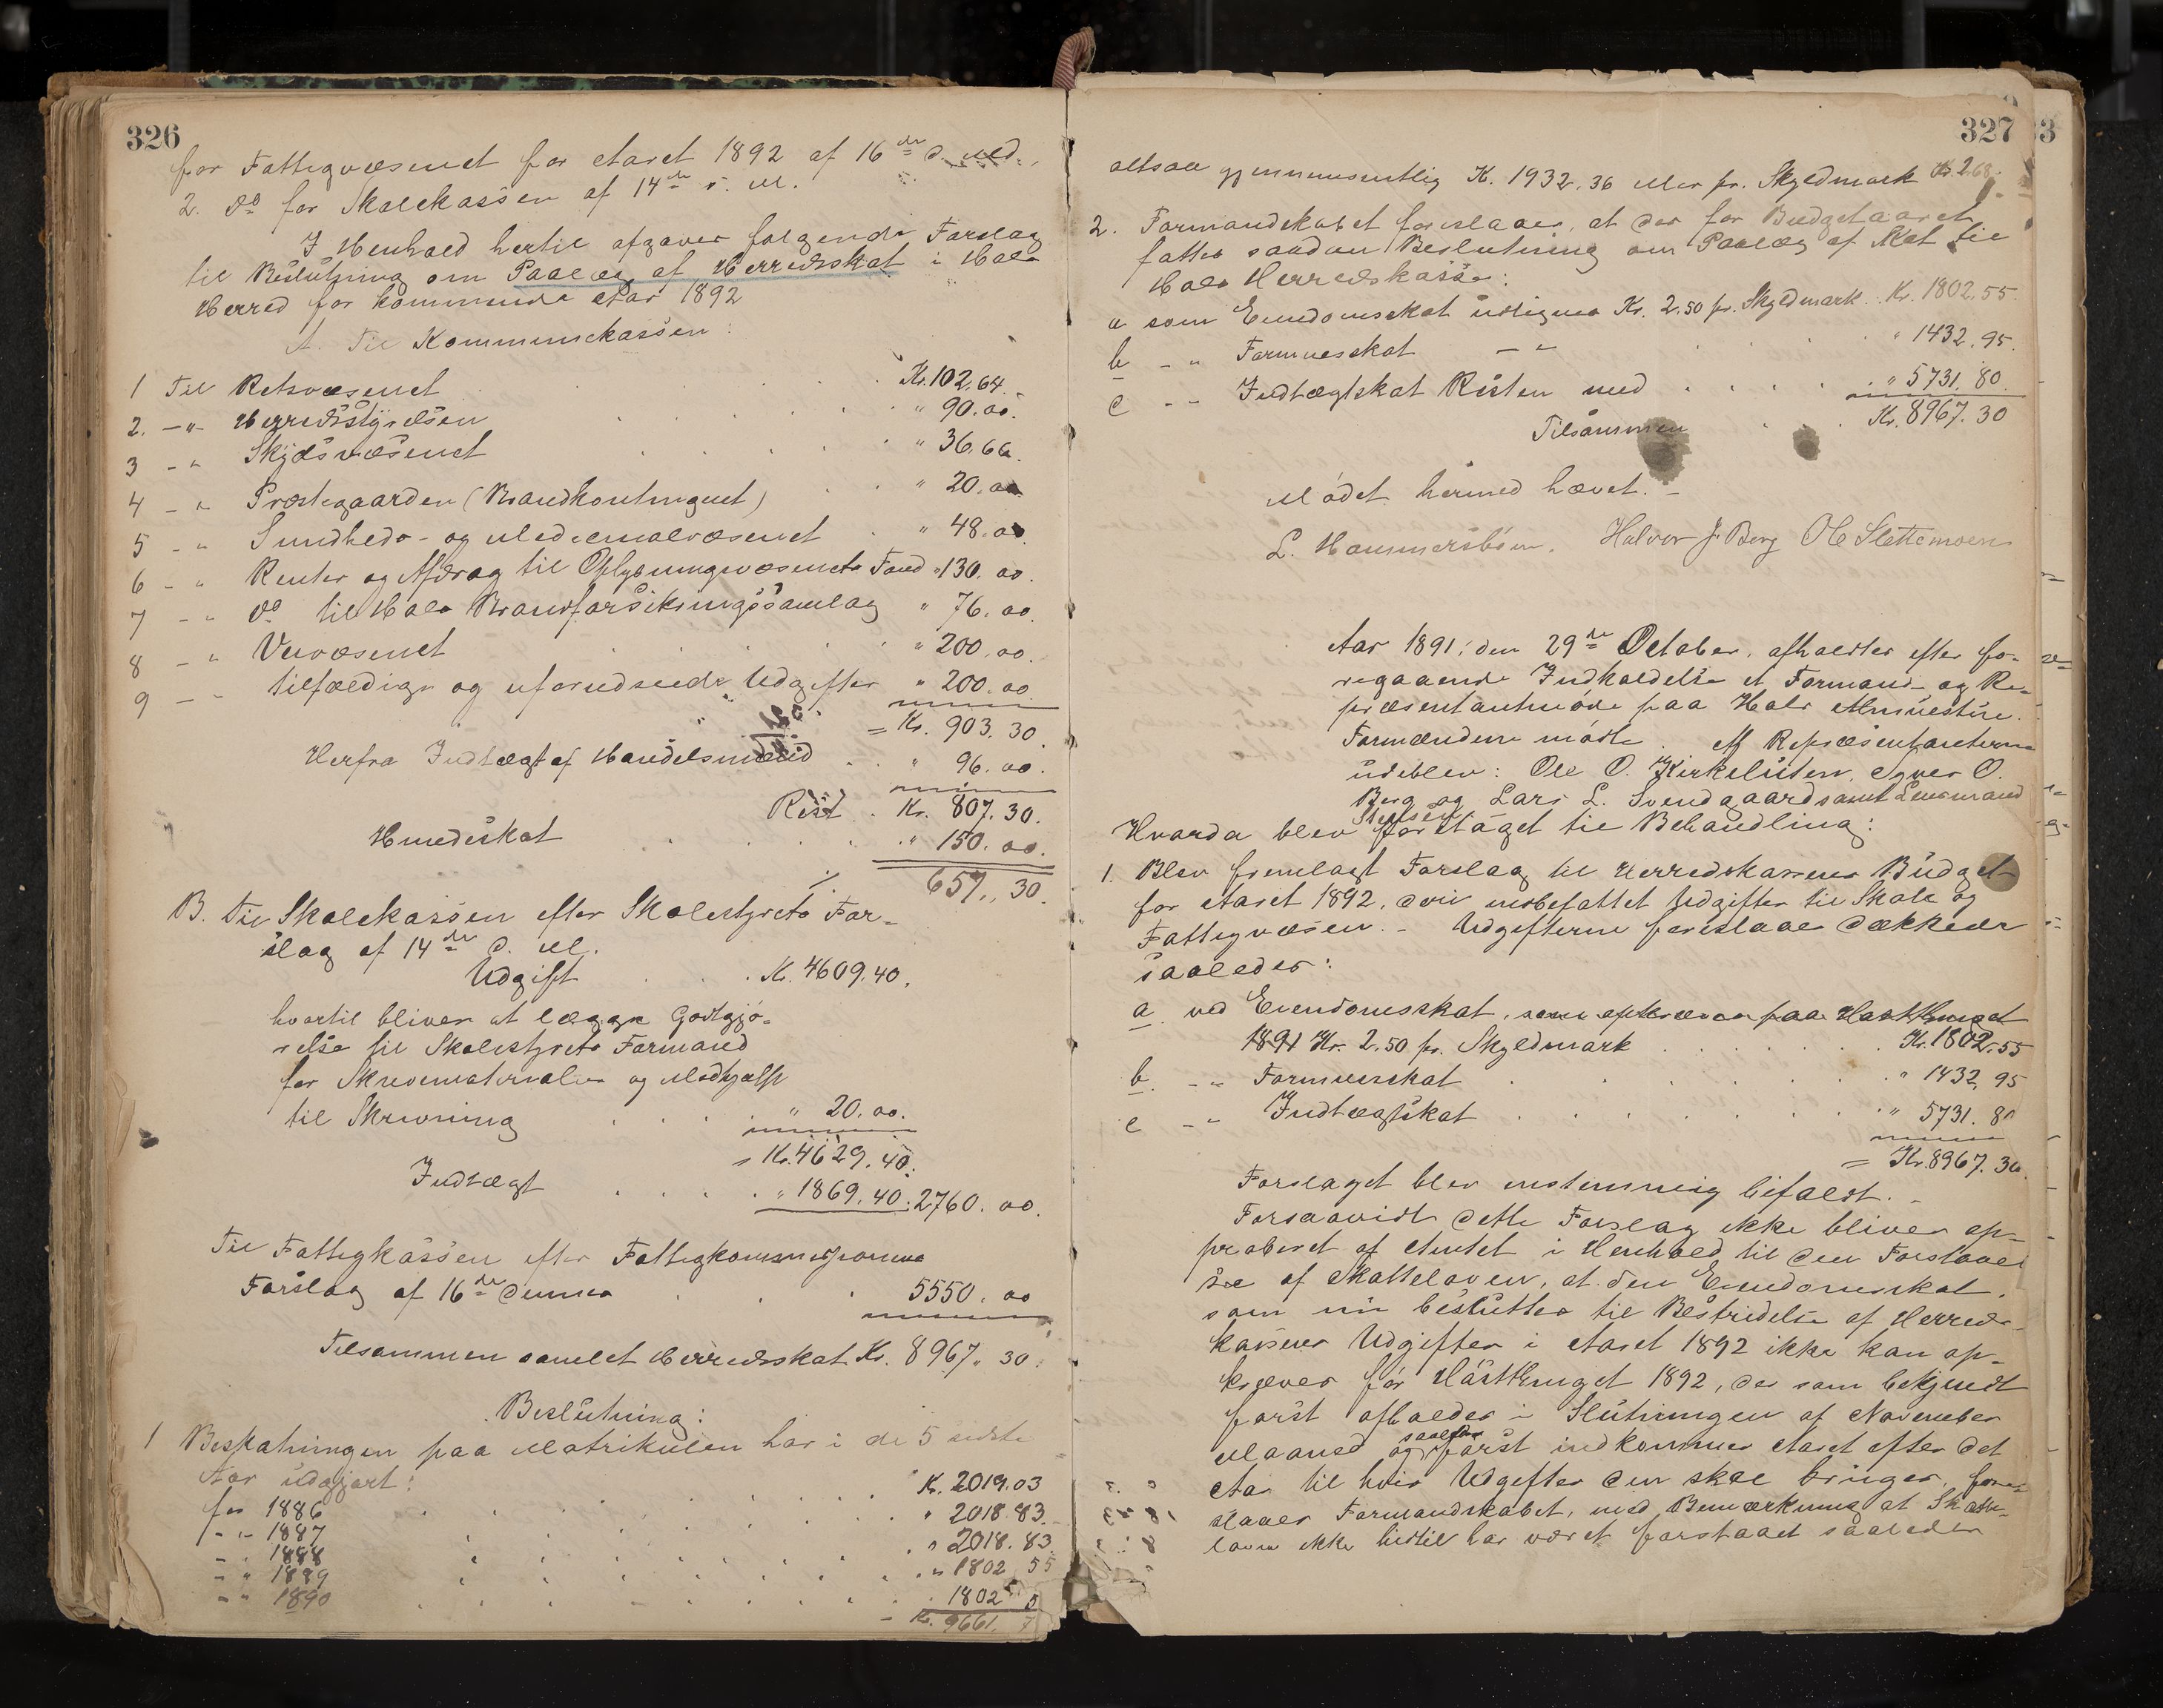 326
for Fattigvæsenet for Aaret 1892 af 16de d. Md.,
2. do for Skolekassen af 14de s. M.
I Henhold hertil afgaves følgende Forslag
til Beslutning om Paalæg af Herredsskat i Hols
Herred for kommende Aar 1892
A. Til Kommunekassen:
1 Til Retsvæsenet Kr. 102.64.
2. -"- Herredsstyrelsen " 90.00.
3 - " Skydsvæsenet " 36.66.
4 - " Præstegaarden (Brandkontingent) " 20.00
5 - " Sundheds- og Medicinalvæsenet " 48.00
6 - " Renter og Afdrag til Oplysningsvæsenets Fond " 130.00.
7 - " do til Hols Brandforsikringssamlag " 76.00.
8 - " Veivæsenet " 200.00.
9 - tilfældige og uforudseede Udgifter " 200.00
= Kr. 903.30.
Herfra Indtægt af Handelsmænd " 96.00.
Rest Kr. 807.30.
Hundeskat " 150.00.
% 657.,30.
B. Til Skolekassen efter Skolestyrets For-
slag af 14de d. M.
Udgift Kr. 4609.40.
hvortil bliver at lægge Godtgjø-
relse til Skolestyrets Formand
for Skrivematerialier og Medhjælp
til Skrivning " 20.00.
= Kr. 4629.40.
Indtægt " 1869.40. 2760.00.
Til Fattigkassen efter Fattigkommissionens
Forslag af 16de dennes 5550.00
Tilsammen samlet Herredsskat Kr. 8967.,30.
Beslutning:
1 Beskatningen paa Matrikulen har i de 5 sidste
Aar udgjort:
for 1886 K. 2019.03
- " - 1887 " 2018.83.
- " 1888 " 2018.83.
- " 1889 " 1802.55
- " 1890 1802 5
= Kr. 9661. 7
327
altsaa gjennemsnitlig K. 1932.36 eller pr. Skyldmark Kr. 2.68.
2. Formandskabet foreslaaes, at der for Budgetaaret
fattes saadan Beslutning om Paalæg af Skat til
Hols Herredskasse:
a som Eiendomsskat udlignes Kr. 2.50 pr. Skyldmark. Kr. 1802.55.
b - " Formuesskat - " - " 1432.95.
c - - Indtægtskat Resten med " 5731.80.
Tilsammen Kr. 8967.30
Mødet hermed hævet. -
L. Hammersbøen. Halvor J. Berg Ole Slettemoen
Aar 1891, den 29de October, afholdtes efter fo-
regaaende Indkaldelse et Formand- og Re-
præsentantmøde paa Hols Almuestue.
Formændene mødte. Af Repræsentanterne
udeblev: Ole O. Kirkeluten, Syver O.
Berg og Lars L. Svendgaard samt Lensmand
Hvorda blev foretaget til Behandling:
1. Blev fremlagt Forslag til Herredskassens Budget
for Aaret 1892, deri indbefattet Udgifter til Skole og
Fattigvæsen. - Udgifterne foreslaaes dækkede
saaledes:
a ved Eiendomsskat, som opkræves paa Høstthinget
1891 Kr. 2.50 pr. Skyldmark Kr. 1802.55
b. - " Formuesskat " 1432.95
c - " Indtægtskat " 5731.80
= Kr. 8967.30.
Forslaget blev enstemmig bifaldt. -
Forsaavidt dette Forslag ikke bliver ap-
proberet af Amtet i Henhold til den Forstaael
se af Skatteloven, at den Eiendomsskat,
som nu besluttes til Bestridelse af Herreds-
kassens Udgifter i Aaret 1892 ikke kan op-
kræves før Høstthinget 1892, der som bekjendt
først afholdes i Slutningen af November
Maaned og saaledes først indkommer Aaret efter det
Aar til hvis Udgifter den skal bringes, fore-
slaaes Formandskabet, med Bemærkning at Skatte-
loven ikke hidtil har været forstaaet saaledes